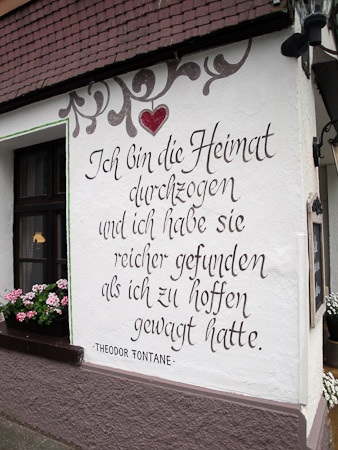 Ich bin die Heimat
durchzogen
und ich habe sie
reicher gefunden
als ich zu hoffen
gewagt hatte.
·THEODOR FONTANE·